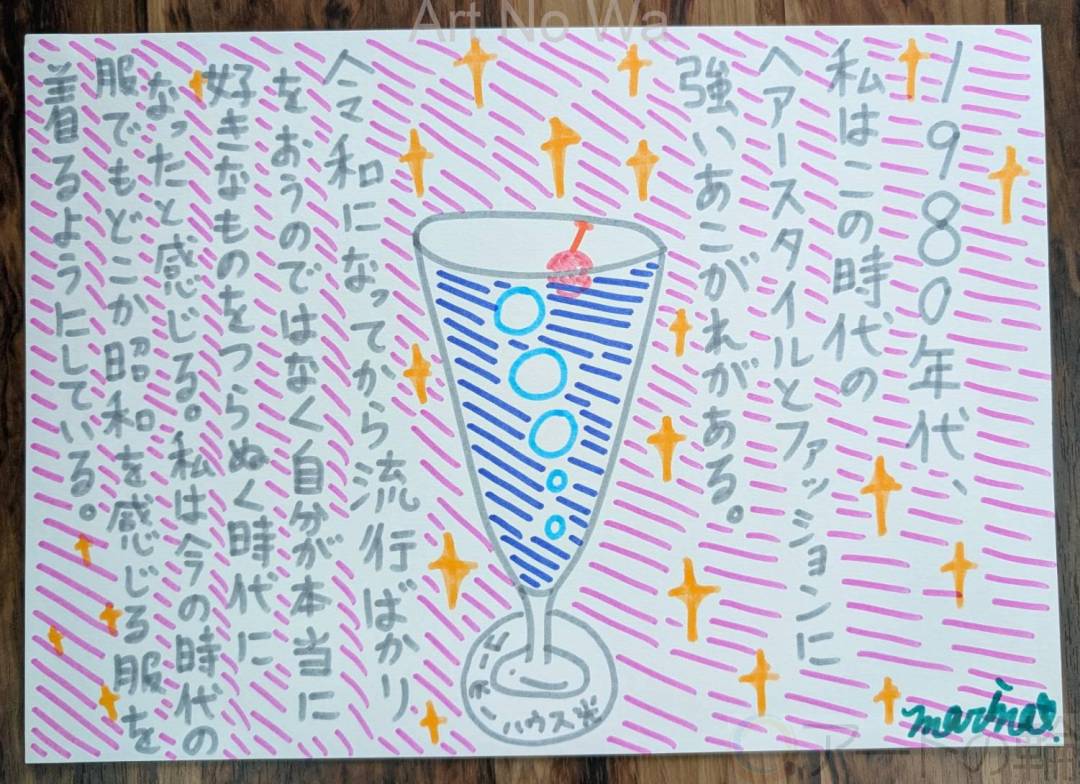 Art No Wa
1980年代、
私はこの時代の
ヘアースタイルとファッションに
強いあこがれがある。
令和になってから流行ばかり
をおうのではなく自分が本当に
好きなものをつらぬく時代に
なったと感じる。私は今の時代の
服でもどこか昭和を感じる服を
着るようにしている。
ハウス栄
marina.
アートの輪